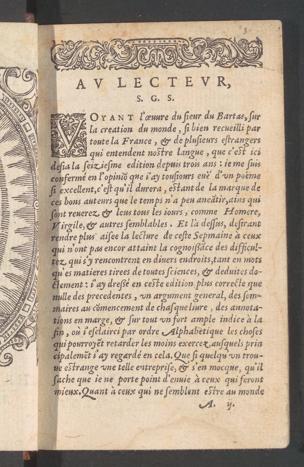 AV LECTEVR,
S. G. S.
VOYANT l'œuure du sieur du Bartas, sur
la creation du monde, si bien recueilli par
toute la France, & de plusieurs estrangers
qui entendent nostre Langue, que c'est ici
desia la seiziesme edition depuis trois ans: ie me suis
confermé en l'opiniō que i'ay tousiours eue d'vn poëme
si excellent, c'est qu'il durera, estant de la marque de
ces bons auteurs que le temps n'a peu aneātir, ains qui
sont reuerez & leus tous les iours, comme Homere,
Virgile, & autres semblables. Et là dessus, desirant
rendre plus aisee la lecture de ceste Sepmaine à ceux
qui n'ont pas encor attaint la cognoissāce des difficul-
tez, qui s'y rencontrent en diuers endroits, tant en mots
qu'es matieres tirees de toutes sciences, & deduites do-
ctement: i'ay dressé en ceste edition plus correcte que
nulle des precedentes, vn argument general, des som-
maires au cōmencement de chasque liure, des annota-
tions en marge, & sur tout vn fort ample indice à la
fin, où i'esclarci par ordre Alphabetique les choses
qui pourroyēt retarder les moins exercez, ausquels prin
cipalemēt i'ay regardé en cela. Que si quelqu'vn trou-
ue estrange vne telle entreprise, & s'en mocque, qu'il
sache que ie ne porte point d'enuie à ceux qui feront
mieux. Quant à ceux qui ne semblent estre au monde
A. ij.